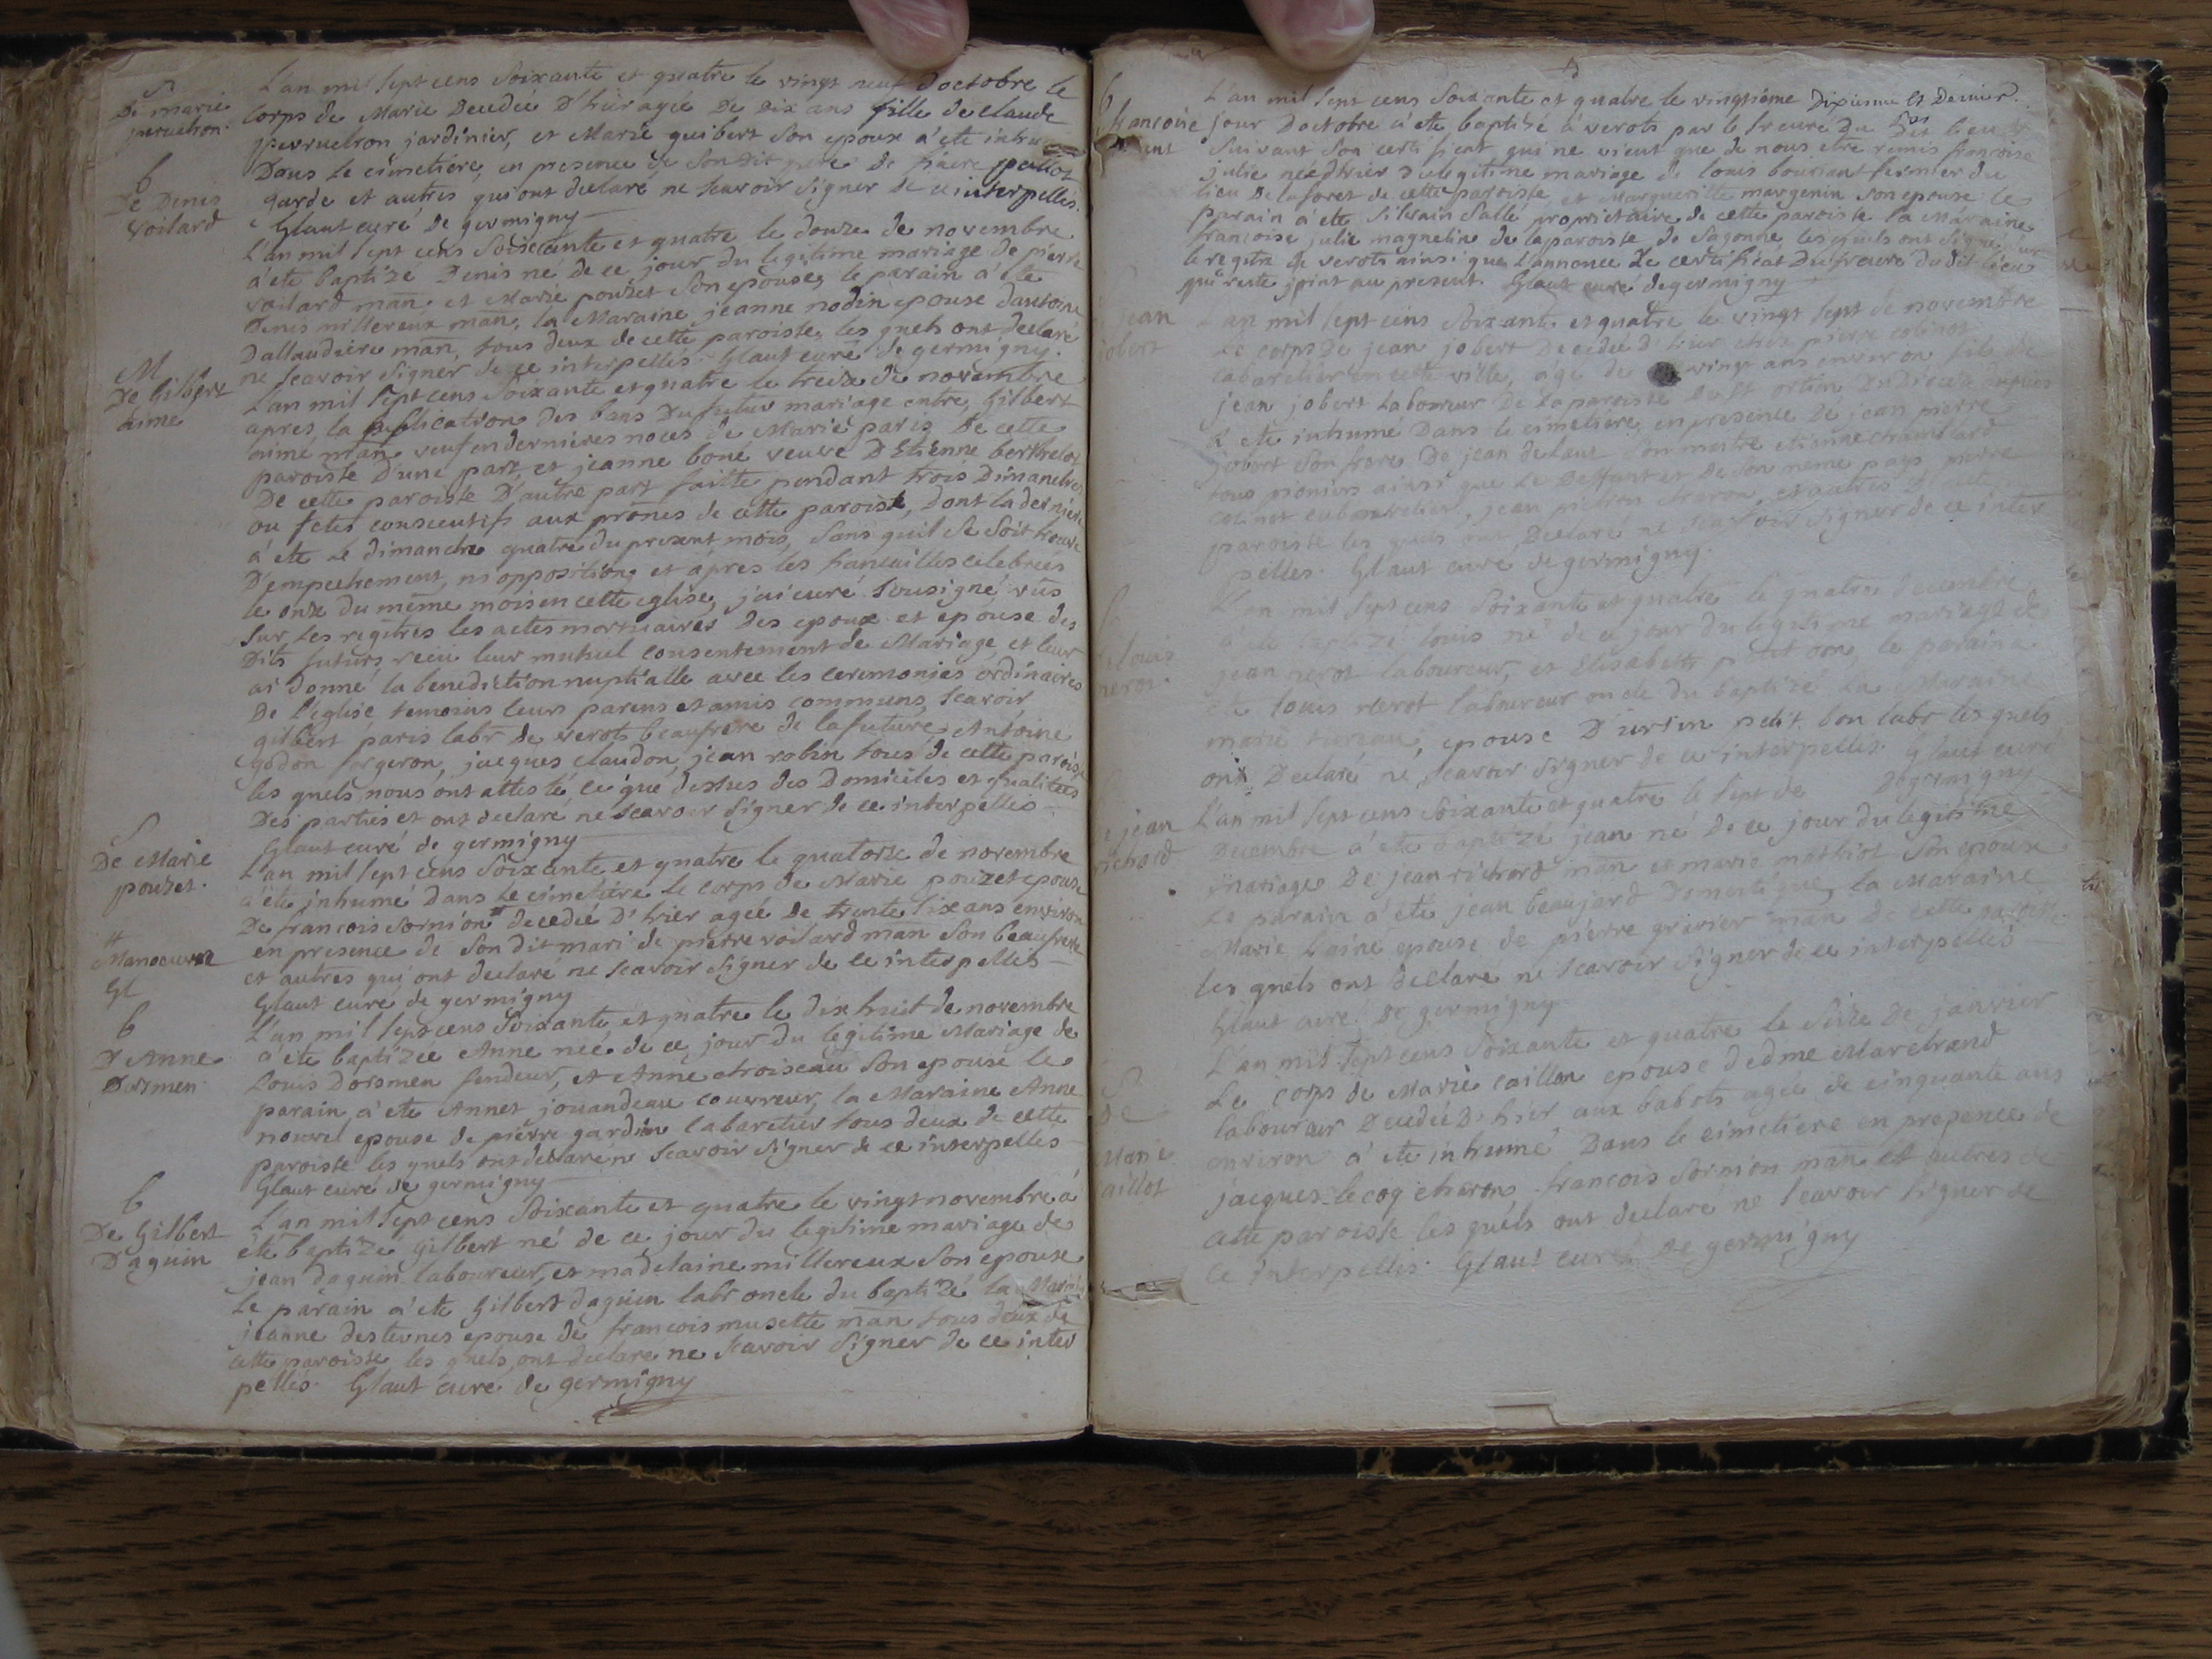 S
De marie
L'an mil sept cens Soixante et quatre le vingt neuf d'octobre le
corps de Marie Decedée D'hier agée De Dix ans fille de claude
jardinier, et Marie guibert Son epoux a été
Dans le cimetiere, en presence de Son dit pere de
garde et autres qui ont declaré ne scavoir signer de ce interpellés.
Glaut curé de germigny
b
De Denis
Voilard
L'an mil sept cens Soixante et quatre le douze de novembre
a été baptizé Denis né de ce jour du legitime mariage de pierre
voilard man. et Marie pouzet Son epouse, le parain a été
Denis millereux man; la Maraine jeanne nodin epouse dantoine
Dallaudiere man, tous deux de cette paroisse, les quels ont declaré
ne scavoir signer de ce interpellés. Glaut curé de germigny.
M
De Gilbert
aimé
L'an mil sept cens Soixante et quatre le treize de novembre
apres la publication des bans Du futur mariage entre Gilbert
aimé man. veuf en dernieres noces de Marie paris De cette
paroisse D'une part, et jeanne boné veuve D'Etienne berthelot
De cette paroisse D'autre part faitte pendant trois Dimanches
ou fetes consecutifs aux prones de cette paroisse, dont la derniere
a été le dimanche quatre du present mois, Sans quil Se Soit trouvé
D'empechement, ni opposition, et après les fiancailles celebrées
le onze du même mois en cette eglise, j'ai curé Sousigné, vus
Sur les regitres les actes mortuaires Des epoux et epouse des
Dits futurs, recu leur mutuel consentement de Mariage, et leur
ai donné la benediction nuptialle avec les ceremonies ordinaires
De l'eglise, temoins leurs parens et amis communs, scavoir
gilbert paris labr de verots beaufrere de la future, Antoine
godon forgeron, jacques claudon, jean robin tous de cette paroisse
les quels nous ont attesté ce que dessus des Domiciles et qualitees
Des parties et ont declaré ne scavoir signer de ce interpellés
Glaut curé de germigny
S
De Marie
pouzet.
L'an mil sept cens Soixante et quatre le quatorze de novembre
a été inhumé dans le cimetiere le corps de Marie pouzet epouse
De francois Sornion # decedée D'hier agée De trente Six ans environ
en presence de Son dit mari de pierre voilard man Son beaufrere
et autres qui ont declaré ne scavoir signer de ce interpellés
Glaut curé de germigny
# Manoeuvre
Gl
b
D'Anne
Dorsmen
L'an mil sept cens Soixante et quatre le dix huit de novembre
a été baptizée Anne née de ce jour du legitime Mariage de
Louis Dorsmen fendeur, et Anne choiseau Son epouse le
parain a été Annet jouandeau couvreur, la Maraine Anne
nouvel epouse de pierre gardin cabaretier tous deux de cette
paroisse les quels ont declaré ne scavoir signer de ce interpellés
Glaut curé de germigny
b
De Gilbert
Daguin
L'an mil sept cens Soixante et quatre le vingt novembre a
été baptizé Gilbert né de ce jour du legitime mariage de
jean daguin laboureur, et madelaine millereux Son epouse
Le parain a été Gilbert daguin labr oncle du baptizé la
jeanne desternes epouse de francois musette man tous deux de
cette paroisse, les quels ont declaré ne scavoir signer de ce inter
pellés. Glaut curé de germigny
b
francoise
L'an mil sept cens Soixante et quatre le vingtiéme Dixieme et Dernier
jour Doctobre a été baptizé a verots par le Sr curé Du Dit lieu
Suivant Son certificat qui ne vient que de nous etre remis francoise
julie née d'hier du legitime mariage de louis bouriant fermier du
lieu De la foret de cette paroisse et Margueritte margenin Son epouse le
parain a été Silvain Sallé proprietaire de cette paroisse la Maraine
francoise julie magnelin de la paroisse de Sagonne, les quels ont signé sur
le regitre de verots ainsi que l'annonce Le certificat Du Sr curé du dit lieu
qui reste joint au present. Glaut curé de germigny
jean
jobert
L'an mil sept cens Soixante et quatre le vingt Sept de novembre
le corps De jean jobert Decedé D'hier chez pierre colinot
cabaretier en cette ville, agé de vingt ans environ fils de
jean jobert laboureur De la paroisse
a été inhumé Dans le cimetiere en presence De jean pierre
jobert Son frere De jean Son maitre etienne
tous pioniers ainsi que Le Deffunt et De Son meme pays, pierre
colinot cabaretier, jean et autres de cette
paroisse les quels ont Declaré ne scavoir signer de ce inter
pellés. Glaut curé de germigny.
b
louis
nerot
L'an mil sept cens Soixante et quatre le quatre Decembre
a été baptizé louis né de ce jour du legitime mariage de
jean nerot laboureur, et Elisabeth le parain a
été louis nerot laboureur oncle du baptizé La Maraine
marie epouse D'ursin petit bon labr les quels
ont Declaré ne scavoir signer de ce interpellés. Glaut curé
De germigny
jean
richard
L'an mil sept cens Soixante et quatre le Sept de
Decembre a été baptizé jean né De ce jour du legitime
mariage De jean richard man et marie mathiot Son epouse
Le parain a été jean beaujard Domestique, la Maraine
Marie Lainé epouse de pierre grivier man De cette paroisse
les quels ont declaré ne scavoir signer de ce interpellés
Glaut curé De germigny
S
De
Marie
caillot
L'an mil sept cens Soixante et quatre le Seize De janvier
Le corps de Marie caillon epouse d'edme Marchand
laboureur Decedée D'hier aux babots agée de cinquante ans
environ a été inhumé Dans le cimetiere en presence de
jacques lecoq charon, francois Sornion man et autres de
cette paroisse les quels ont declaré ne scavoir signer de
ce interpellés. Glaut curé De germigny